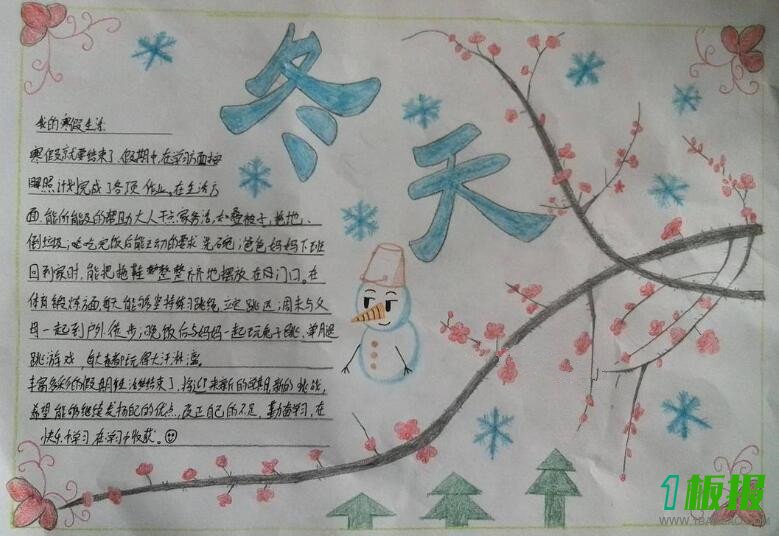 冬天
我的寒假生活
寒假就要结束了,假期中,在学习方面按
照计划完成了各项作业。在生活方
面,能所能及的帮助大人干家务活,如叠被子,拖地,
倒垃圾,吃完饭后能主动的要求洗碗,爸爸妈妈下班
回到家时,能把拖鞋整整齐齐地摆放在门口。在
体育锻炼方面,每天能够坚持练习跳绳,立定跳远,周末与父
母一起到户外徒步,晚饭后与妈妈一起玩兔子跳,单腿
跳游戏,每天都玩得大汗淋漓。
丰富多彩的假期生活结束了,将迎来新的学期,新的挑战,
希望能够继续发扬自己的优点,改正自己的不足,勤奋学习,在
快乐中学习在学习中收获。
1板报